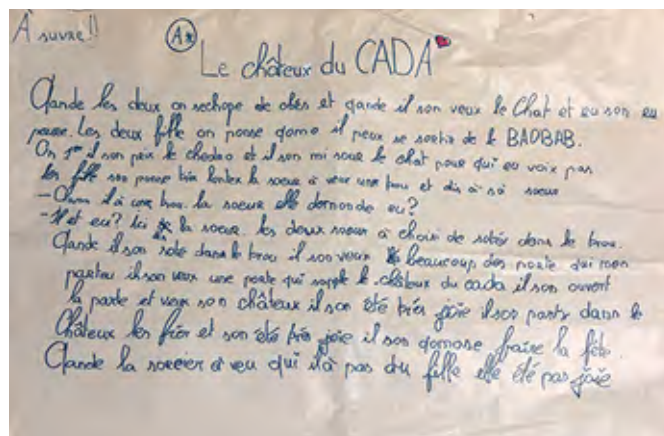 À suivre!!
A*
Le châteux du CADA
Qande les deux on sechope de obés et qande il son veux le Chat et eu son eu
peure. Les deux fille on ponse qomo il peux se sortir de le BAOBAB.
On 1er il son prix le et il son mi soue le chat pour qui eu voix pas
les fille son ponse bia la soeur a veux une trou et dis a sa soeur
- il a une trou. la soeur elle demonde eu?
- la soeur. les deux soeur a choisi de soté dans le trou.
Qande il son soté dans le trou il son veux beaucoup des poste qui mon
partou il son veux une poste qui sapple le châteux du cada il son ouvert
la parte et veux son châteux il son été très joie il son party dans le
Châteux les frèr et son été très joie il son qomonse fraire la fête.
Qande la sorcier a veu qui il a pas du fille elle été pas joie